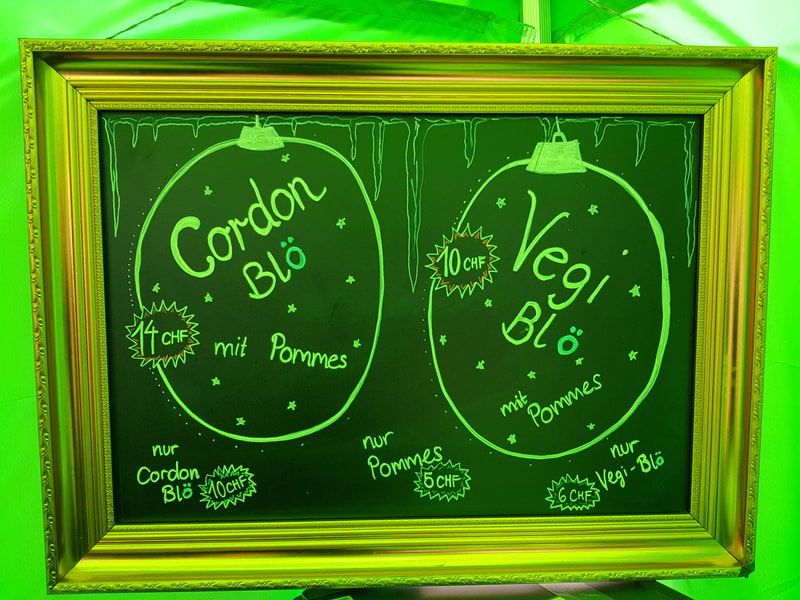 Cordon
Blö
14 CHF
mit Pommes
Vegi
10 CHF
Blö
mit Pommes
nur
Cordon
Blö
10 CHF
nur
Pommes
5 CHF
nur
Vegi-Blö
6 CHF